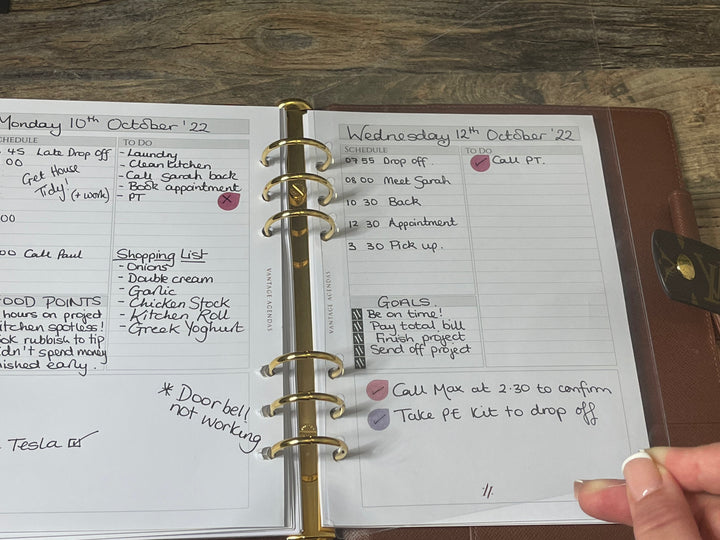 Monday 10th October '22
SCHEDULE
45 Late Drop off
00
Get House
Tidy! (+ work)
00
00 Call Paul
TO DO
- Laundry
- Clean Kitchen
- Call Sarah back
- Book appointment
- PT
Shopping List
- Onions
- Double cream
- Garlic
- Chicken Stock
- Kitchen Roll
- Greek Yoghurt
FOOD POINTS
hours on project
itchen spotless!
ook rubbish to tip
idn't spend money
nished early.
* Doorbell
not working
Tesla
VANTAGE AGENDAS
VANTAGE AGENDAS
Wednesday 12th October '22
SCHEDULE
07 55 Drop off.
08 00 Meet Sarah
10 30 Back
12 30 Appointment
3 30 Pick up.
TO DO
Call PT.
GOALS.
Be on time!
Pay total bill
Finish project
Send off project
Call Max at 2.30 to confirm
Take PE Kit to drop off